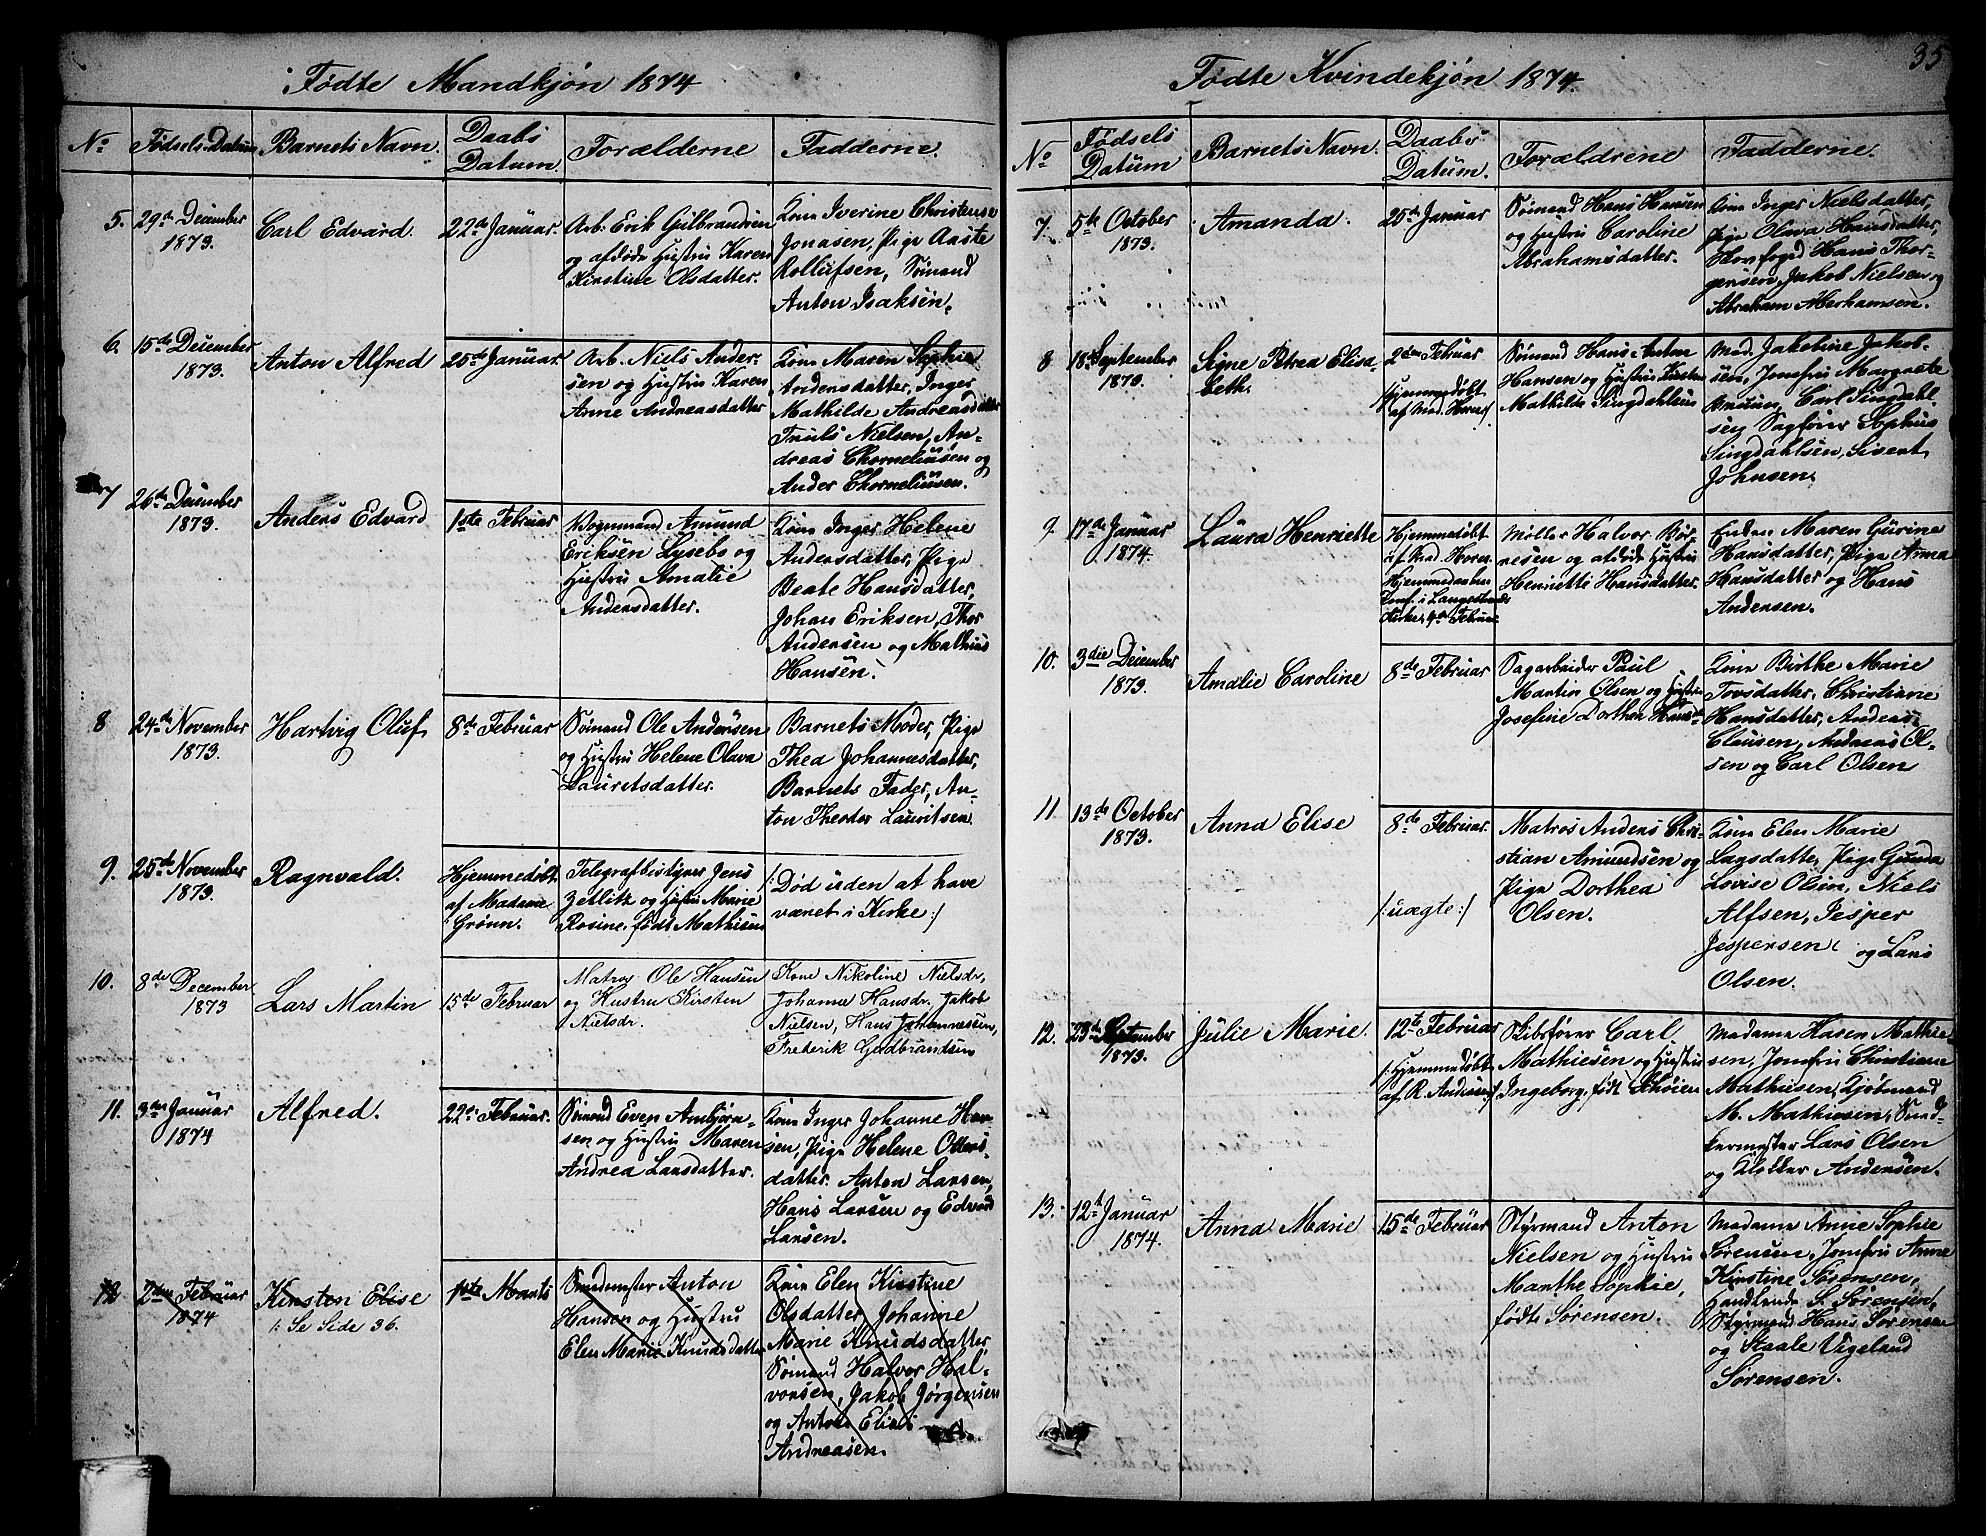 35
Fødte Mandkjøn 1874
No
Fødsels-Datum
Barnets Navn.
Daabs
Datum.
Forælderne
Fadderne.
5.
29de December
1873.
Carl Edvard.
22de Januar.
Arb. Erik Gulbrandsen
og afdøde Hustru Karen
Kirstine Olsdatter.
Kone Iverine Christense
Jonasen, Pige Aaste
Rollufsen, Sømand
Anton Isaksen.
6.
15de December
1873.
Anton Alfred
25de Januar.
Arb. Niels Ander-
sen og Hustru Karen
Anne Andreasdatter
Kone Maren Sophie
Andersdatter, Inger
Mathilde Andreasdatter
Truls Nielsen, An-
dreas Chorneliusen og
Ander Chorneliusen.
7
26de December
1873.
Anders Edvard
1ste Februar
Vognmand Amund
Eriksen Lysebo og
Hustru Amalie
Andersdatter.
Kone Inger Helene
Andersdatter, Pige
Beate Hansdatter,
Johan Eriksen, Thor
Andersen og Mathias
Hansen.
8
24de November
1873.
Hartvig Oluf
8de Februar
Sømand Ole Andersen
og Hustru Helene Olava
Lauritsdatter.
Barnets Moder, Pige
Thea Johannesdatter,
Barnets Fader, An-
ton Theodor Lauritsen.
9.
25de November
1873.
Ragnvald.
Hjemmedøbt
af Madame
Grønn.
Telegrafbestyrer Jens
Zetlitz og Hustru Marie
Rosine, født Mathisen
/: Død uden at have
været i Kirke :/
10.
8de December
1873
Lars Martin
15de Februar
Matros Ole Hansen
og Hustru Kirsten
Nielsdr.
Kone Nikoline Nielsdr,
Johanne Hansdr. Jakob
Nielsen, Hans Johannessen,
Frederik Gudbrandsen
11.
3die Januar
1874
Alfred.
22de Februar.
Sømand Even Ambjørn-
sen og Hustru Maren
Andrea Larsdatter.
Kone Inger Johanne Han-
sen, Pige Helene Olters-
datter. Anton Larsen,
Hans Larsen og Edvard
Larsen.
12
2den Februar
1874
Kirsten Elise
/: Se Side 36.
1ste Marts
Smedmester Anton
Hansen og Hustru
Elen Marie Knudsdatter
Kone Elen Kirstine
Olsdatter, Johanne
Marie Knudsdatter,
Sømand Halvor Hal-
vorsen, Jakob Jørgensen
og Anton Elias
Andreasen.
Fødte Kvindekjøn 1874.
No
Fødsels
Datum
Barnets Navn.
Daabs
Datum.
Forældrene
Fadderne.
7.
5te October
1873.
Amanda.
25de Januar
Sømand Hans Hansen
og Hustru Caroline
Abrahamsdatter.
Kone Inger Nielsdatter,
Pige Olava Hansdatter,
Skovfoged Hans Thor-
gersen, Jakob Nielsen og
Abraham Aberhamsen.
8
18de September
1873.
Signe Petrea Elisa-
beth.
2den Februar
/: Hjemmedøbt
af Mad. Horn :/
Sømand Hans Anton
Hansen og Hustru Kirsten
Mathilde Singdahlsen
Mad. Jakobine Jakob-
sen, Jomfru Margrete
Bruun, Carl Singdahl-
sen Sagfører Sophus
Singdahlsen, Sivert
Johnsen.
9.
17de Januar
1874.
Laura Henriette
Hjemmedøbt
af Mad. Horn.
Hjemmedaaben
conf. i Langestrands
Kirke, 4de Februar
Møller Halvor Bør-
resen og afdøde Hustru
Henriette Hansdatter.
Enken Maren Gurine
Hansdatter, Pige Anna
Hansdatter og Hans
Andersen.
10.
3die December
1873.
Amalie Caroline
8de Februar
Sagarbeider Paul
Martin Olsen og Hustru
Josefine Dorthea Hansdr
Kone Birthe Marie
Torsdatter, Christiane
Hansdatter, Andreas
Clausen, Andreas Ol-
sen og Carl Olsen
11
13de October
1873.
Anna Elise
8de Februar.
/: uægte :/
Matros Anders Chri-
stian Amundsen og
Pige Dorthea
Olsen.
Kone Elen Marie
Larsdatter, Pige Gunda
Lovise Olsen, Niels
Alfsen, Jesper
Jespersen og Lars
Olsen.
12.
23de September
1873.
Julie Marie.
12te Februar
/: Hjemmedøbt
af R. Andersen :/
Skibsfører Carl
Mathiesen og Hustru
Ingeborg, født Schøien
Madame Karen Mathie-
sen, Jomfru Christiane
Mathiesen, Kjøbmand
M. Mathiesen, Sned-
kermester Lars Olsen
og Klokker Andersen.
13.
12te Januar
1874.
Anna Marie
15de Februar
Styrmand Anton
Nielsen og Hustru
Marthe Sophie,
født Sørensen.
Madame Anne Sophie
Sørensen, Jomfru Anne
Kirstine Sørensen,
Handlende S. Sørensen,
Styrmand Hans Sørensen
og Staale Vigeland
Sørensen.